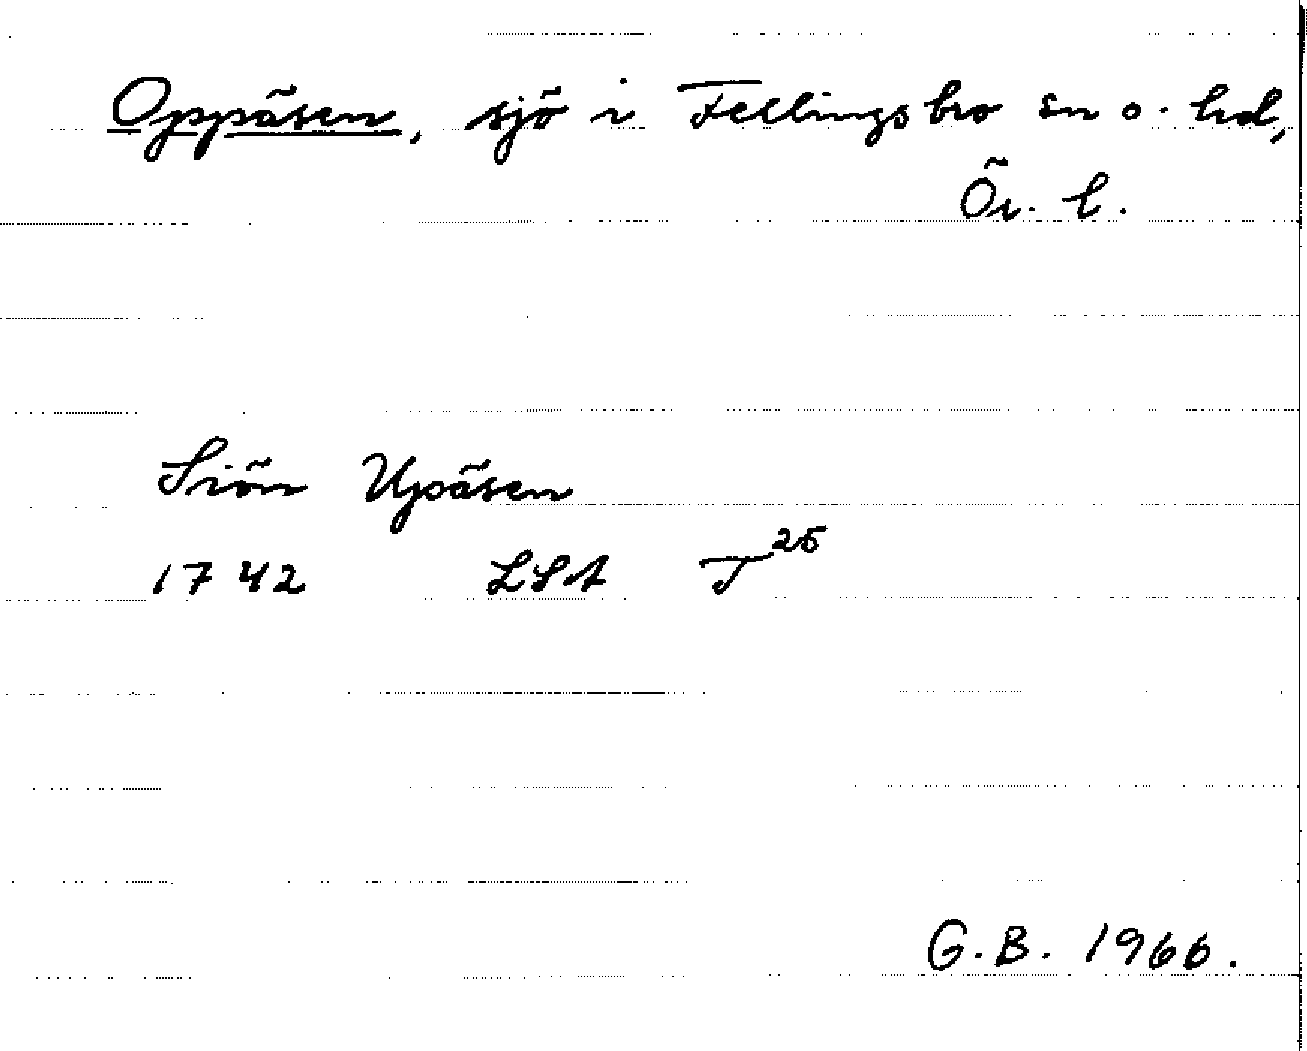 Oppäsen, sjö i Fellingsbro sn o. hd,
Ör. l.
Siön Upäsen
1742 LSA T25
G.B. 1966.